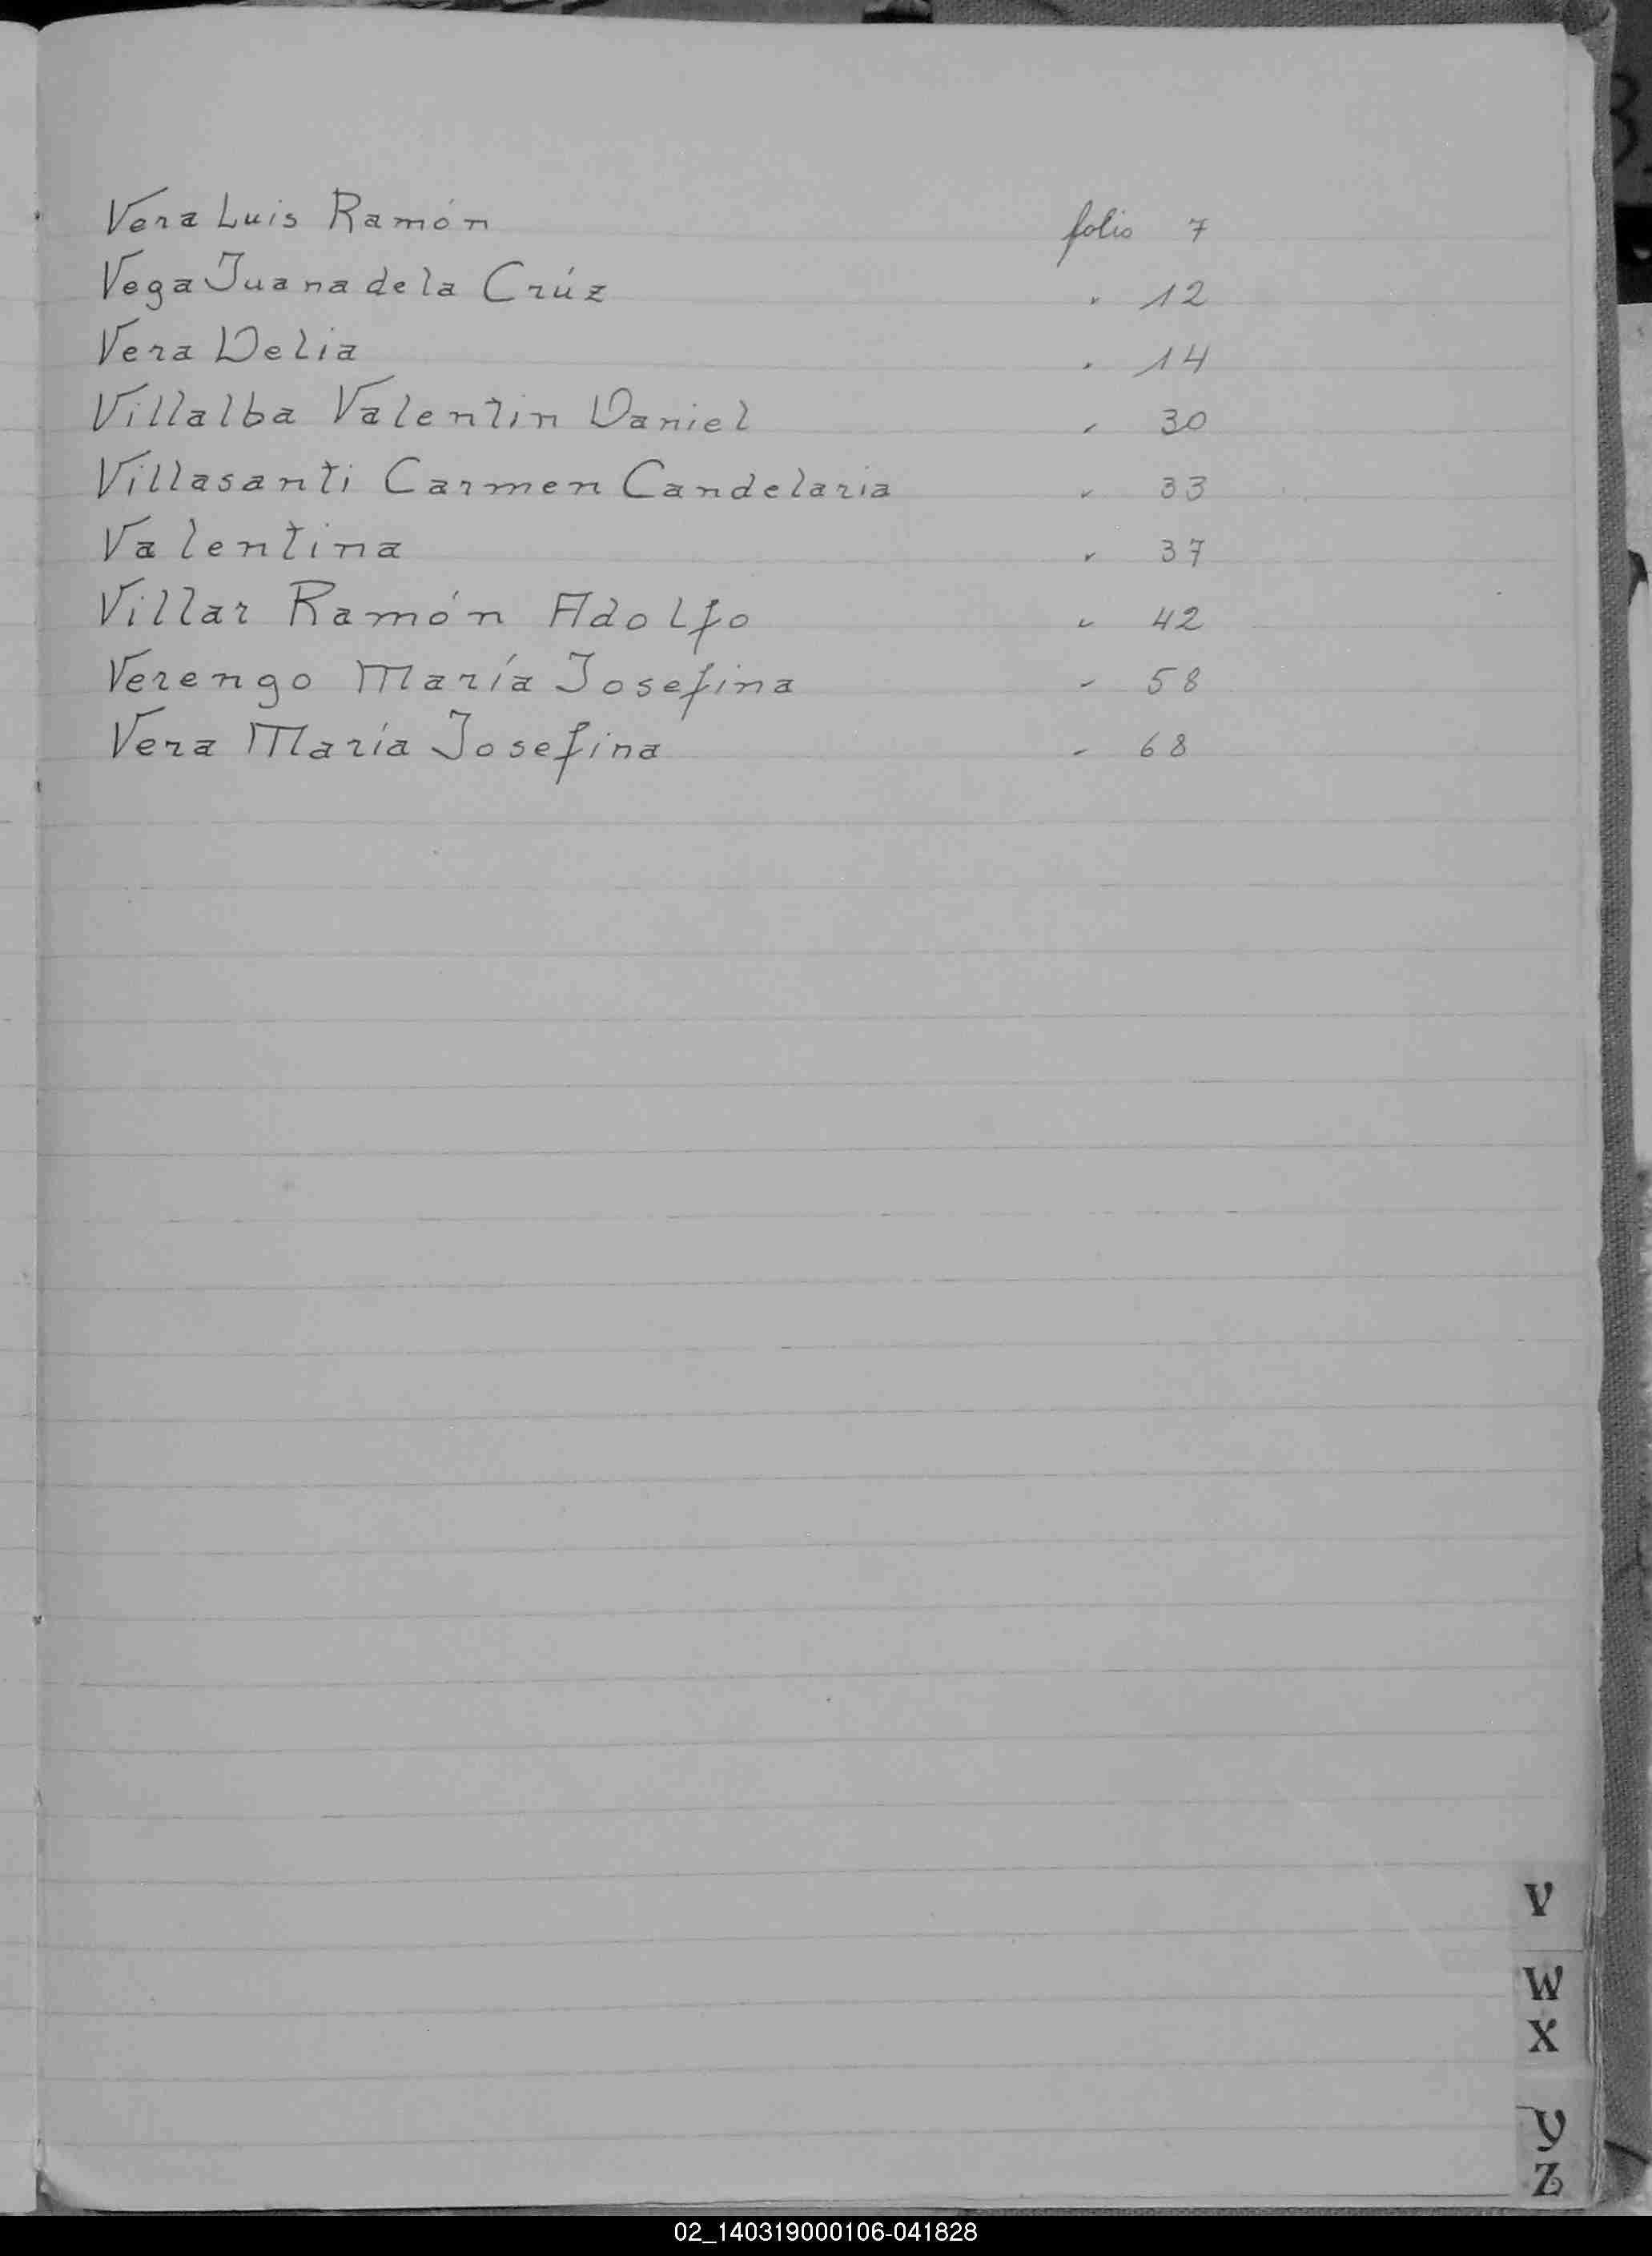 Vera Luis Ramón folio 7
Vega Juana de la Crúz " 12
Vera Delia " 14
Villalba Valentin Daniel " 30
Villasanti Carmen Candelaria " 33
Valentina " 37
Villar Ramón Adolfo " 42
Verengo María Josefina " 58
Vera María Josefina " 68
V
W
X
Y
Z
02_140319000106-041828